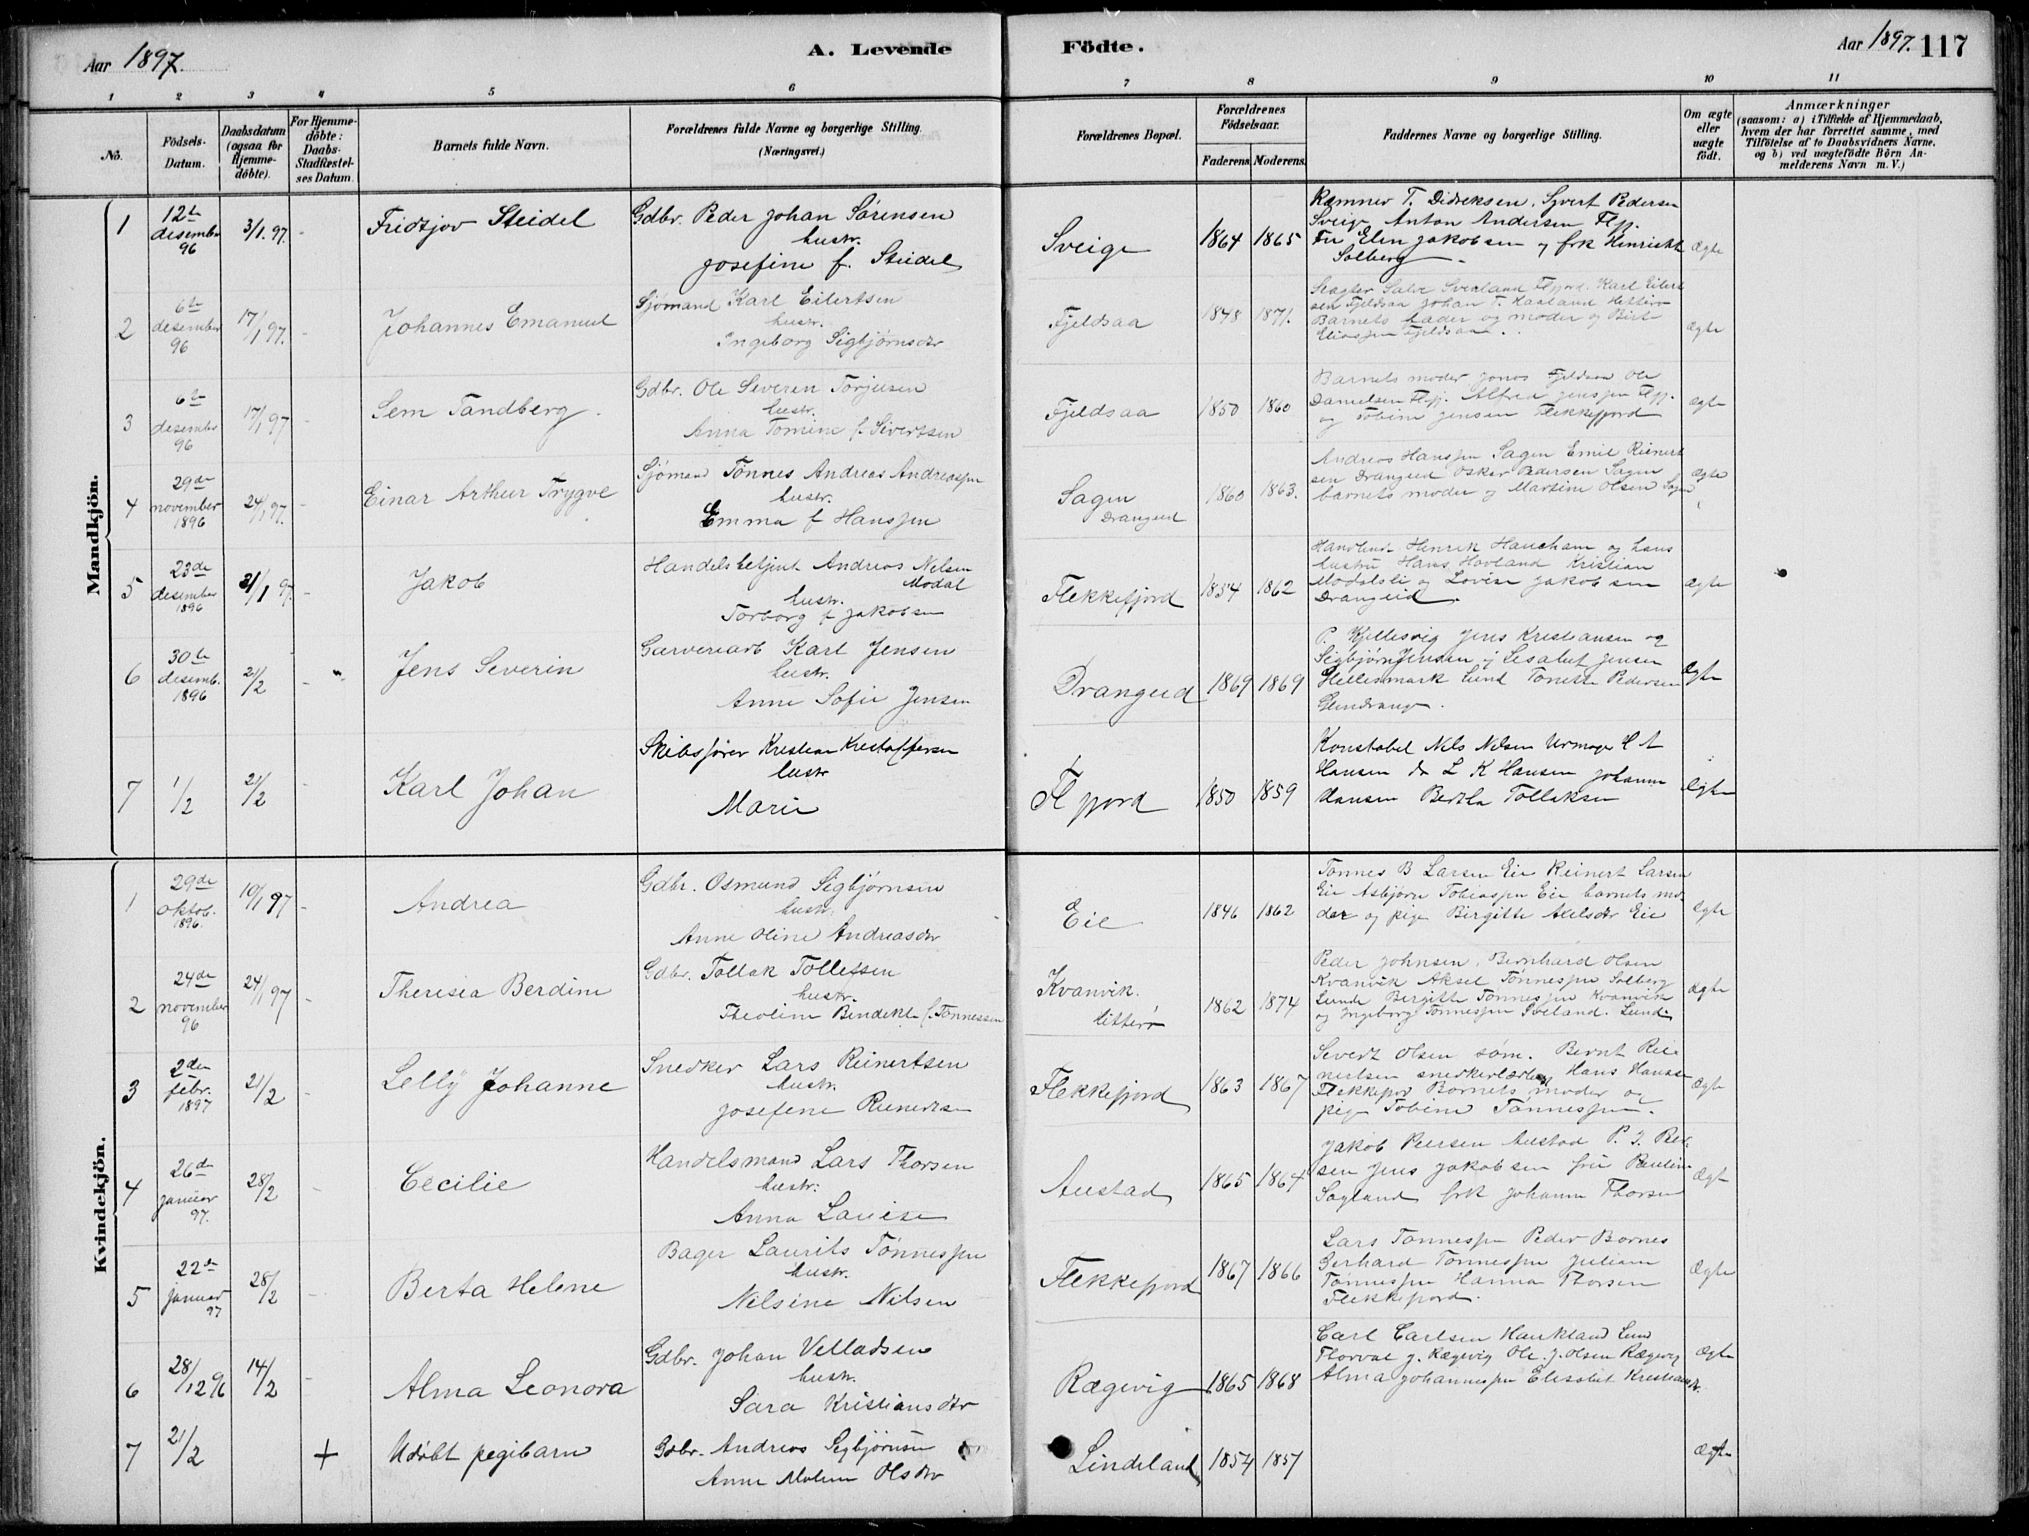 Aar 1897.
A. Levende Födte.
Aar 1897. 117
1 2 3 4 5 6 7 8 9 10 11
No.
Födsels-Datum.
Daabsdatum (ogsaa for Hjemme-döbte).
For Hjemme-döbte: Daabs-Stadfæstel-ses Datum.
Barnets fulde Navn.
Forældrenes fulde Navne og borgerlige Stilling.
(Næringsvei.)
Forældrenes Bopæl.
Forældrenes Födselsaar.
Faderens Moderens
Faddernes Navne og borgerlige Stilling.
Om ægte eller uægte födt.
Anmærkninger
(saasom: a) i Tilfælde af Hjemmedaab,
hvem der har forrettet samme, med
Tilföielse af to Daabsvidners Navne,
og b) ved uægtefödte Börn An-
melderens Navn m. V.)
Mandkjön.
1 12te desember 96 3/1.97. - Fridtjov Steidel
Gdbr. Peder Johan Sørensen
hustr.
Josefine f. Steidel
Sveige 1864 1865
Kemner T. Didreksen. Sjvert Pedersen
Sveige Anton Andersen Flfj.
Fru Elen Jakobsen og frk Henriekt
Solberg
Ægte
2 6te desember 96 17/1 97. - Johannes Emanuel
Sjömand Karl Eilertsen
hustr.
Ingeborg Sigbjørnsdtr
Fjeldsaa 1848 1871.
Barnets fader og moder og
Ægte
3 6te desember 96 17/1 97 - Sem Tandberg.
Gdbr. Ole Severin Torjusen
hustr.
Anna Tomine f. Sivertsen
Fjeldsaa 1850 1860
Barnets moder Jonas Fjeldsaa Ole
Danielsen Flfj. Alfred Jenssen Flfj.
og Tobine Jensen Flekkefjord
Ægte
4 29de november 1896 24/1 97. - Einar Arthur Trygve
Sjömand Tønnes Andreas Andreassen
hustr.
Emma f Hanssen
Sagen
Drangeid
1860 1863.
Andreas Hanssen Sagen Emil Reinert
sen Drangeid Oskar Pedersen Sagen
barnets moder og Martine Olsen Sagen
Ægte
5 23de desember 1896 31/1 97 - Jakob
Handelsbetjent Andreas Nilsen
Modal
hustr.
Torborg f Jakobsen
Flekkefjord 1854 1862
hustru Hans Hovland Kristian
Modalsli og Lovise Jakobsen
Drangeid.
Ægte
6 30te desemb. 1896 21/2 - Jens Severin
Garveriarb Karl Jensen
hustr.
Anne Sofie Jensen
Drangeid 1869 1869
P. Kjellesvig Jens Kristiansen og
Sigbjørn Jensen, Lisabet Jensen
Lund Tonette Pedersen
Ægte
7 1/2 21/2 - Karl Johan
Skibsfører Kristian Kristoffersen
hustr
Marie
Fl fjord 1850 1859
Konstabel Nils Nilsen Urmager H A
Hansen do L K Hansen Johanne
Hansen Bertha Tollaksen
Ægte
Kvindekjön.
1 29de oktob. 1896. 10/1 97 - Andrea
Gdbr. Osmund Sigbjørnsen
hustr.
Anne Oline Andreasdtr
Eie 1846 1862
Tönnes B Larsen Eie Reinert Larsen
Eie Asbjørn Tobiassen Eie barnets mo-
der og pige Birgitte Axelsdtr Eie
Ægte
2 24de november 96 24/1 97 - Theresia Berdine
Gdbr. Tollak Tollefsen
hustr.
Theoline Bendikte f. Tønnessen
Kvanvik.
Hitterø
1862 1874
Peder Johnsen, Bernhard Olsen
Kvanvik Aksel Tønnessen Solberg
Lunde Birgitte Tønnessen Kvanvik
og Ingeborg Tønnessen Sveland. Lund.
Ægte
3 2den febr. 1897 21/2 - Lelly Johanne
Snedker Lars Reinertsen
hustr.
Josefine Reinertsen
Flekkefjord 1863 1867
Severt Olsen søm. Bernt Rei-
nertsen snedkerlærling Hans Hanssen
Flekkefjord Barnets moder og
pige Tobine Tønnessen.
Ægte
4 26de januar 97. 28/2 - Cecilie
Handelsmand Lars Thorsen
hustr.
Anna Lovise
Austad 1865 1864
Jakob Peersen Austad P. J. Peer-
sen Jens Jakobsen fru Pauline
Sogland frk Johanne Thorsen
Ægte
5 22de januar 97 28/2 - Berta Helene
Bager Laurits Tønnessen
hustr.
Nilsine Nilsen
Flekkefjord 1867 1866
Lars Tønnessen Peder Bornes
Gerhard Tønnessen Juliane
Tønnessen Hanna Thorsen
Flekkefjord.
Ægte
6 28/12 96 14/2 - Alma Leonora
Gdbr. Johan Velladsen
hustr.
Sara Kristiansdtr
Rægevig 1865 1868
Carl Carlsen Haukland Lund
Thorval J. Rægevig Ole J. Olsen Rægevig
Alma Johannessen Elisabet Kristiansdtr.
Ægte
7 21/2 + Udøbt pigebarn
Gdbr. Andreas Sigbjørnsen
Anne Malene Olsdtr
Lindeland 1854 1857
Ægte